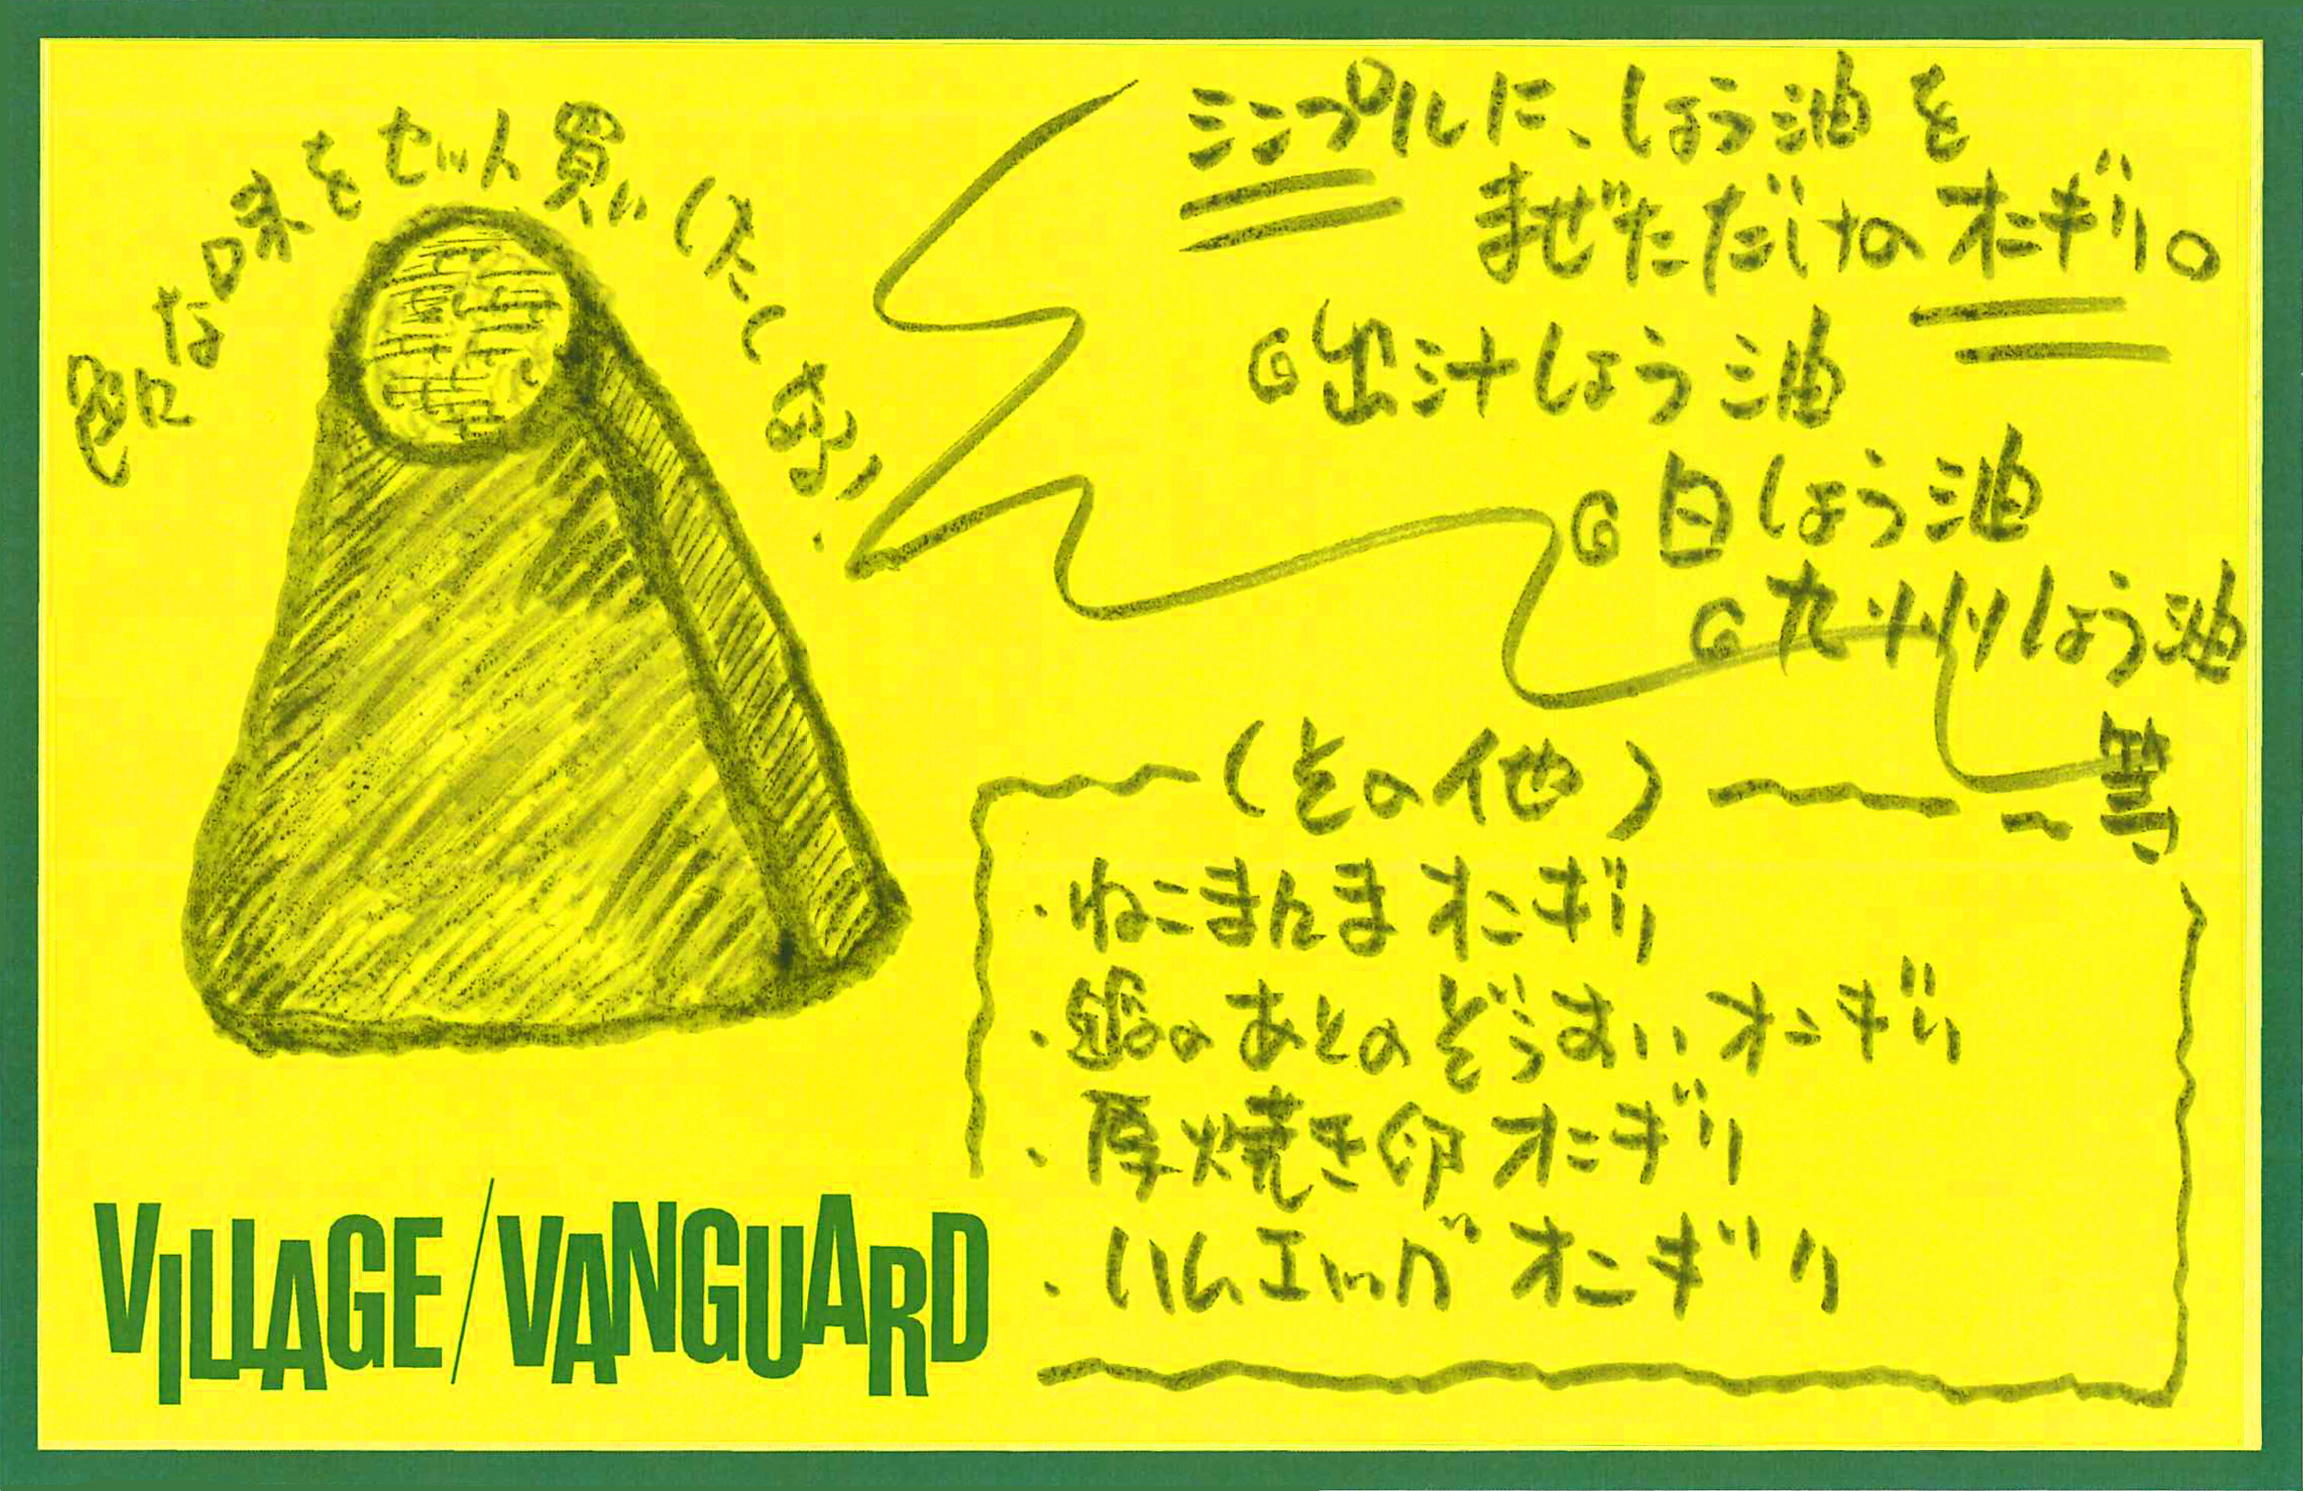 色々な味をセット買いしたくなる!
シンプルに、しょう油を
まぜただけのオニギリ。
出汁しょう油
白しょう油
九州しょう油
等
(その他)
・ねこまんまオニギリ
・鍋のあとのぞうすいオニギリ
・厚焼き卵オニギリ
・ハムエッグオニギリ
VILLAGE/VANGUARD